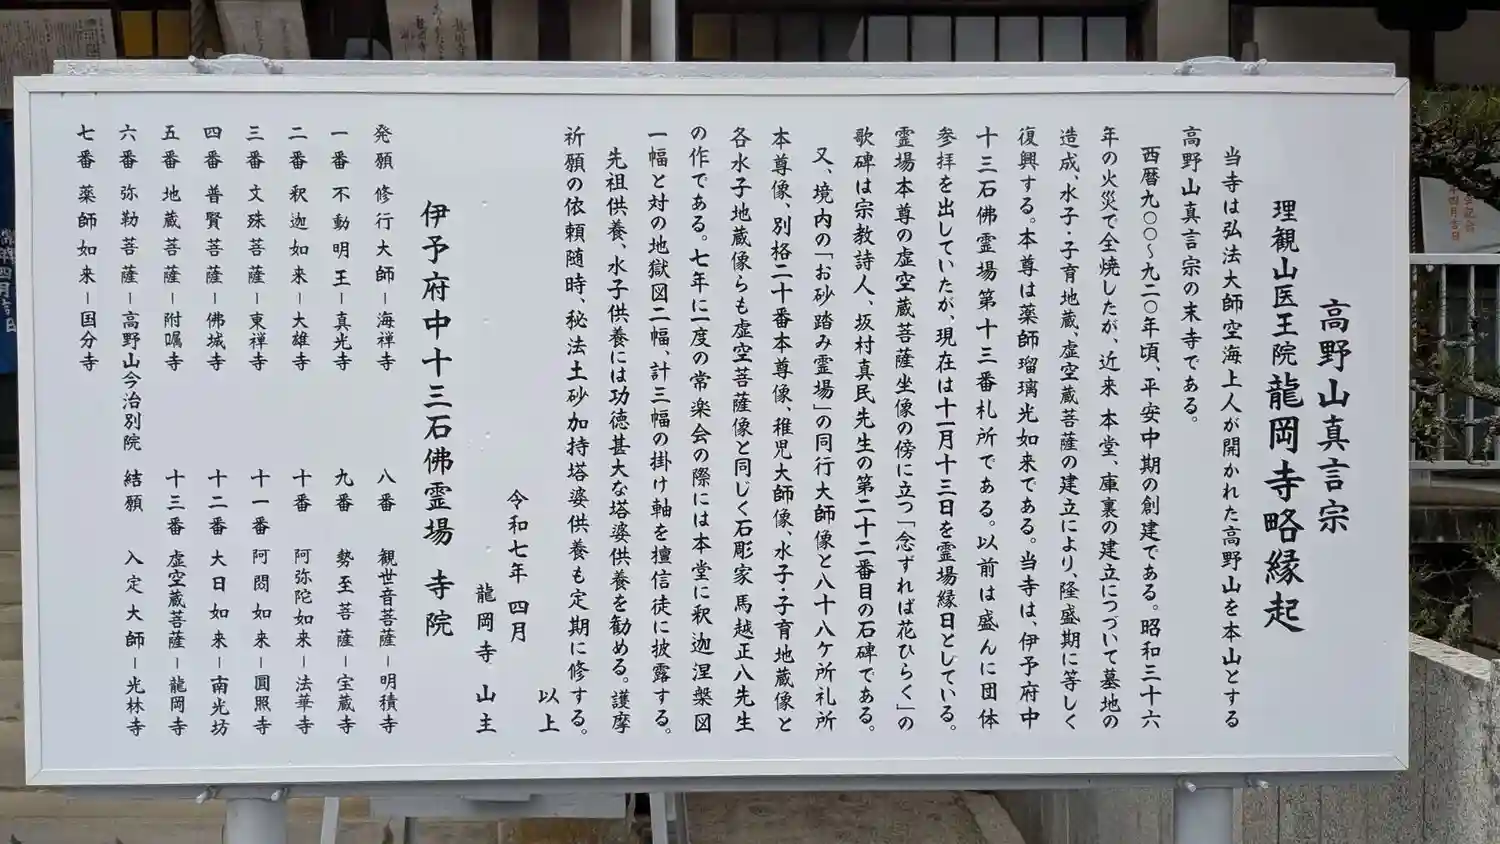 高野山真言宗
理観山医王院龍岡寺略縁起
当寺は弘法大師空海上人が開かれた高野山を本山とする
高野山真言宗の末寺である。
西暦九〇〇～九二〇年頃、平安中期の創建である。昭和三十六
年の火災で全焼したが、近来 本堂、庫裏の建立につづいて墓地の
造成、水子・子育地蔵、虚空蔵菩薩の建立により、隆盛期に等しく
復興する。本尊は薬師瑠璃光如来である。当寺は、伊予府中
十三石佛霊場第十三番札所である。以前は盛んに団体
参拝を出していたが、現在は十一月十三日を霊場縁日としている。
霊場本尊の虚空蔵菩薩坐像の傍に立つ「念ずれば花ひらく」の
歌碑は宗教詩人、坂村真民先生の第二十二番目の石碑である。
又、境内の「お砂踏み霊場」の同行大師像と八十八ケ所礼所
本尊像、別格二十番本尊像、稚児大師像、水子・子育地蔵像と
各水子地蔵像らも虚空菩薩像と同じく石彫家 馬越正八先生
の作である。七年に一度の常楽会の際には本堂に釈迦涅槃図
一幅と対の地獄図二幅、計三幅の掛け軸を檀信徒に披露する。
先祖供養、水子供養には功徳甚大な塔婆供養を勧める。護摩
祈願の依頼随時、秘法土砂加持塔婆供養も定期に修する。
以上
令和七年 四月
龍岡寺 山主
伊予府中十三石佛霊場 寺院
発願 修行大師－海禅寺
一番 不動明王－真光寺
二番 釈迦如来－大雄寺
三番 文殊菩薩－東禅寺
四番 普賢菩薩－佛城寺
五番 地蔵菩薩－附嘱寺
六番 弥勒菩薩－高野山今治別院
七番 薬師如来－国分寺
八番 観世音菩薩－明積寺
九番 勢至菩薩－宝蔵寺
十番 阿弥陀如来－法華寺
十一番 阿閦如来－圓照寺
十二番 大日如来－南光坊
十三番 虚空蔵菩薩－龍岡寺
結願 入定大師－光林寺